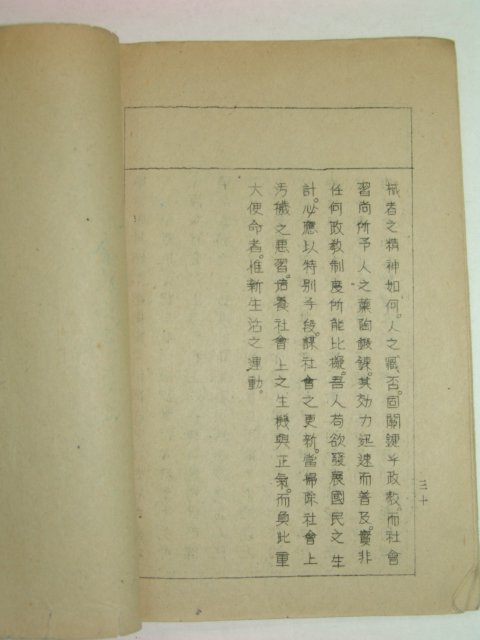 者之精神如何。人之臧否。固關鍊乎政教。而社會
習尚所予人之薰陶鍛鍊。其効力迅速而普及。實非
任何政教制度所能比擬。吾人苟欲發展國民之生
計。必應以特别手段。謀社會之更新。當掃除社會上
汚穢之惡習。培養社會上之生機與正氣。而負此重
大使命者。惟新生活之運動。
三十